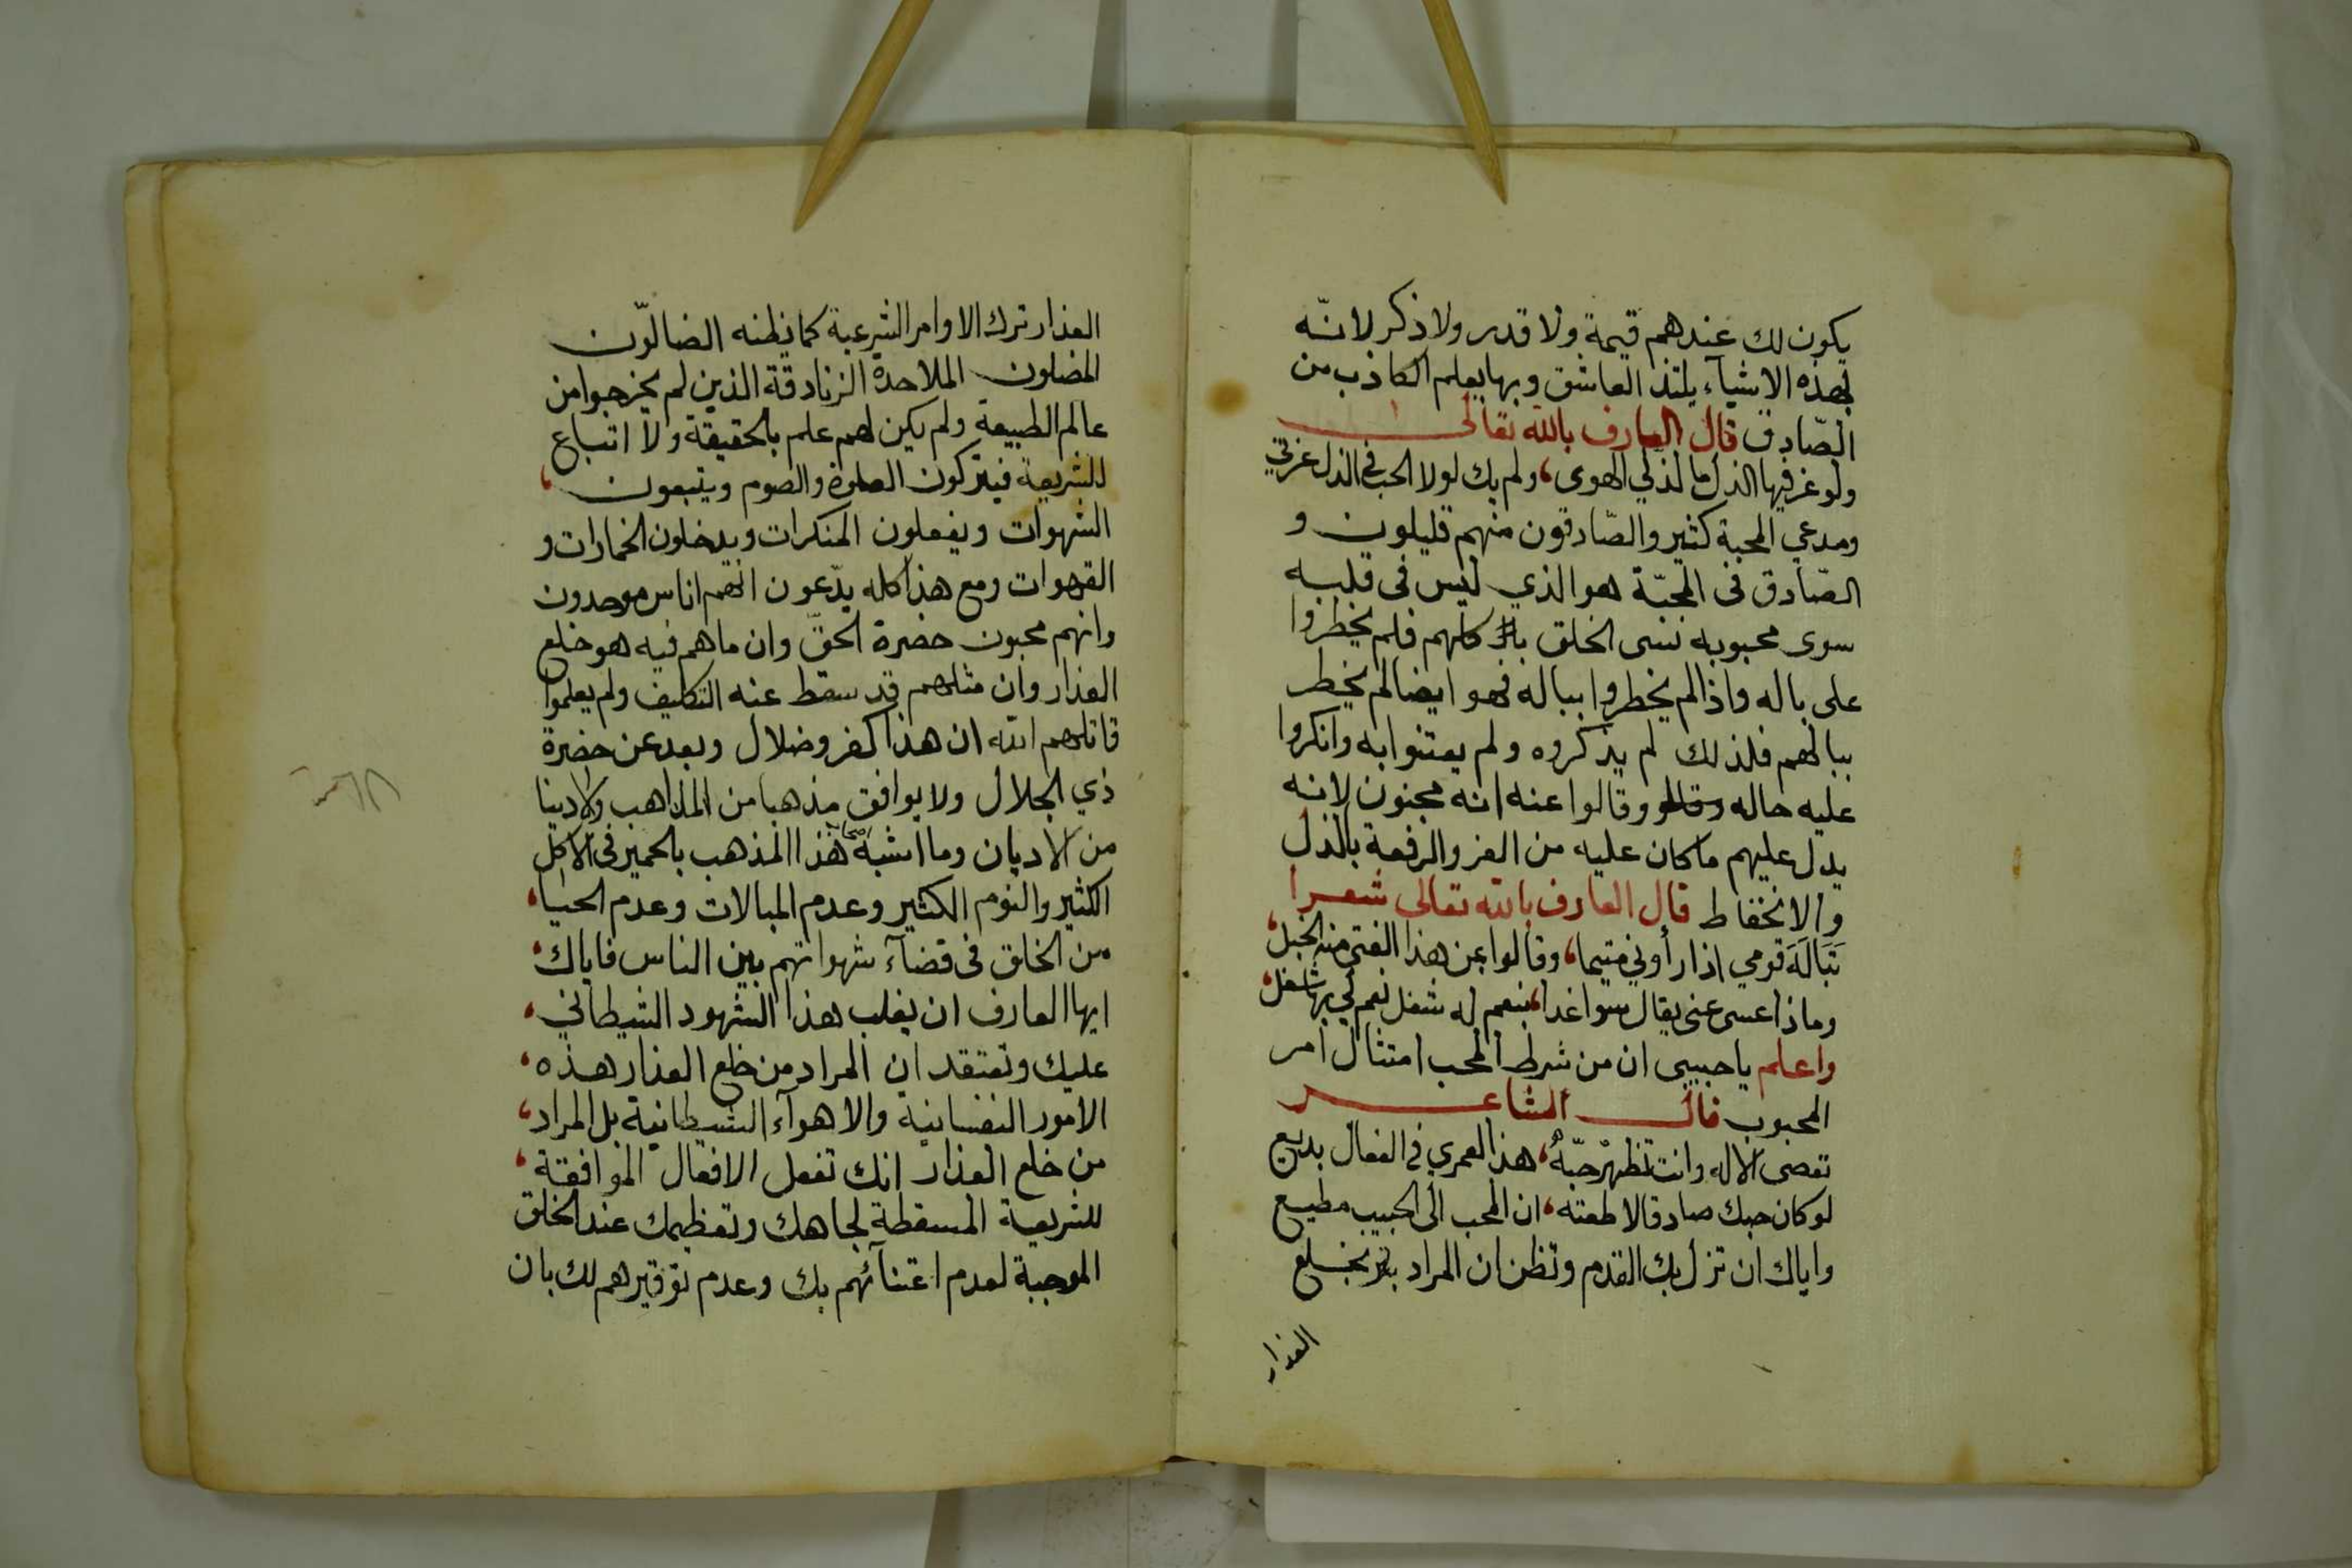 يكون لك عندهم قيمة ولا قدر ولا ذكر لانّه
بهذه الاشيآء يلتذ العاشق وبها يعلم الكاذب من
الصّادق قال العارف بالله تعالى
ولو عز فيها الذل ما لذ لي الهوى، ولم يك لولا الحب في الذل عزتي
ومدعي المحبة كثير والصّادقون منهم قليلون و
الصّادق في المحبّة هو الذي ليس في قلبه
سوى محبوبه ننسى الخلق كلهم فلم يخطروا
على باله واذا لم يخطروا بباله فهو ايضا لم يخطر
ببالهم فلذلك لم يذكروه ولم يعتنوا به وانكروا
عليه حاله وقالوا عنه انه مجنون لانه
بدل عليهم ما كان عليه من العز والرفعة بالذل
والانخفاط قال العارف بالله تعالى شعرا
تَبَالَهَ قومي اذ رأوني متيما، وقالوا بمن هذا الفتى منه الخبل،
وماذا عسى عنى يقال سوا غدا، بنعم له شغل نعم لي بها شغل،
واعلم يا حبيبى ان من شرط المحب امتثال امر
المحبوب قال الشاعر
تعصى الاله وانت تظهرْ حبّهُ، هذا لعمري في الفعال بديع
لو كان حبك صادقا لاطعته، ان المحب الى الحبيب مطيع
واياك ان تزل بك القدم وتظن ان المراد بخلع
العذار
العذار ترك الاوامر الشرعية كما يظنه الضالّون
المضلون الملاحدة الزنادقة الذين لم يخرجوا من
عالم الطبيعة ولم يكن لهم علم بالحقيقة ولا اتباع
للشريعة فيتركون الصلوة والصوم ويتبعون،
الشهوات ويفعلون المنكرات ويدخلون الخمارات و
القهوات ومع هذا كله يدّعون انهم اناس موحدون
وانهم محبون حضرة الحقّ وان ما هم فيه هو خلع
العذار وان مثلهم قد سقط عنه التكليف ولم يعلموا
قاتلهم الله ان هذا كفر وضلال وبعد عن حضرة
ذي الجلال ولا يوافق مذهبا من المذاهب ولا دينا
من الاديان وما اشبه هذا المذهب بالحمير في الاكل
الكثير والنوم الكثير وعدم المبالات وعدم الحيا،
من الخلق فى قضآء شهواتهم بين الناس فاياك،
ايها العارف ان يغلب هذا الشهود الشيطاني،
عليك وتعتقد ان المراد من خلع العذار هذه،
الامور النفسانية والاهوآء الشيطانية بل المراد،
من خلع العذار انك تفعل الافعال الموافقة،
للشريعة المسقطة لجاهك وتعظيمك عند الخلق
الموجبة لعدم اعتنآئهم بك وعدم توقيرهم لك بان